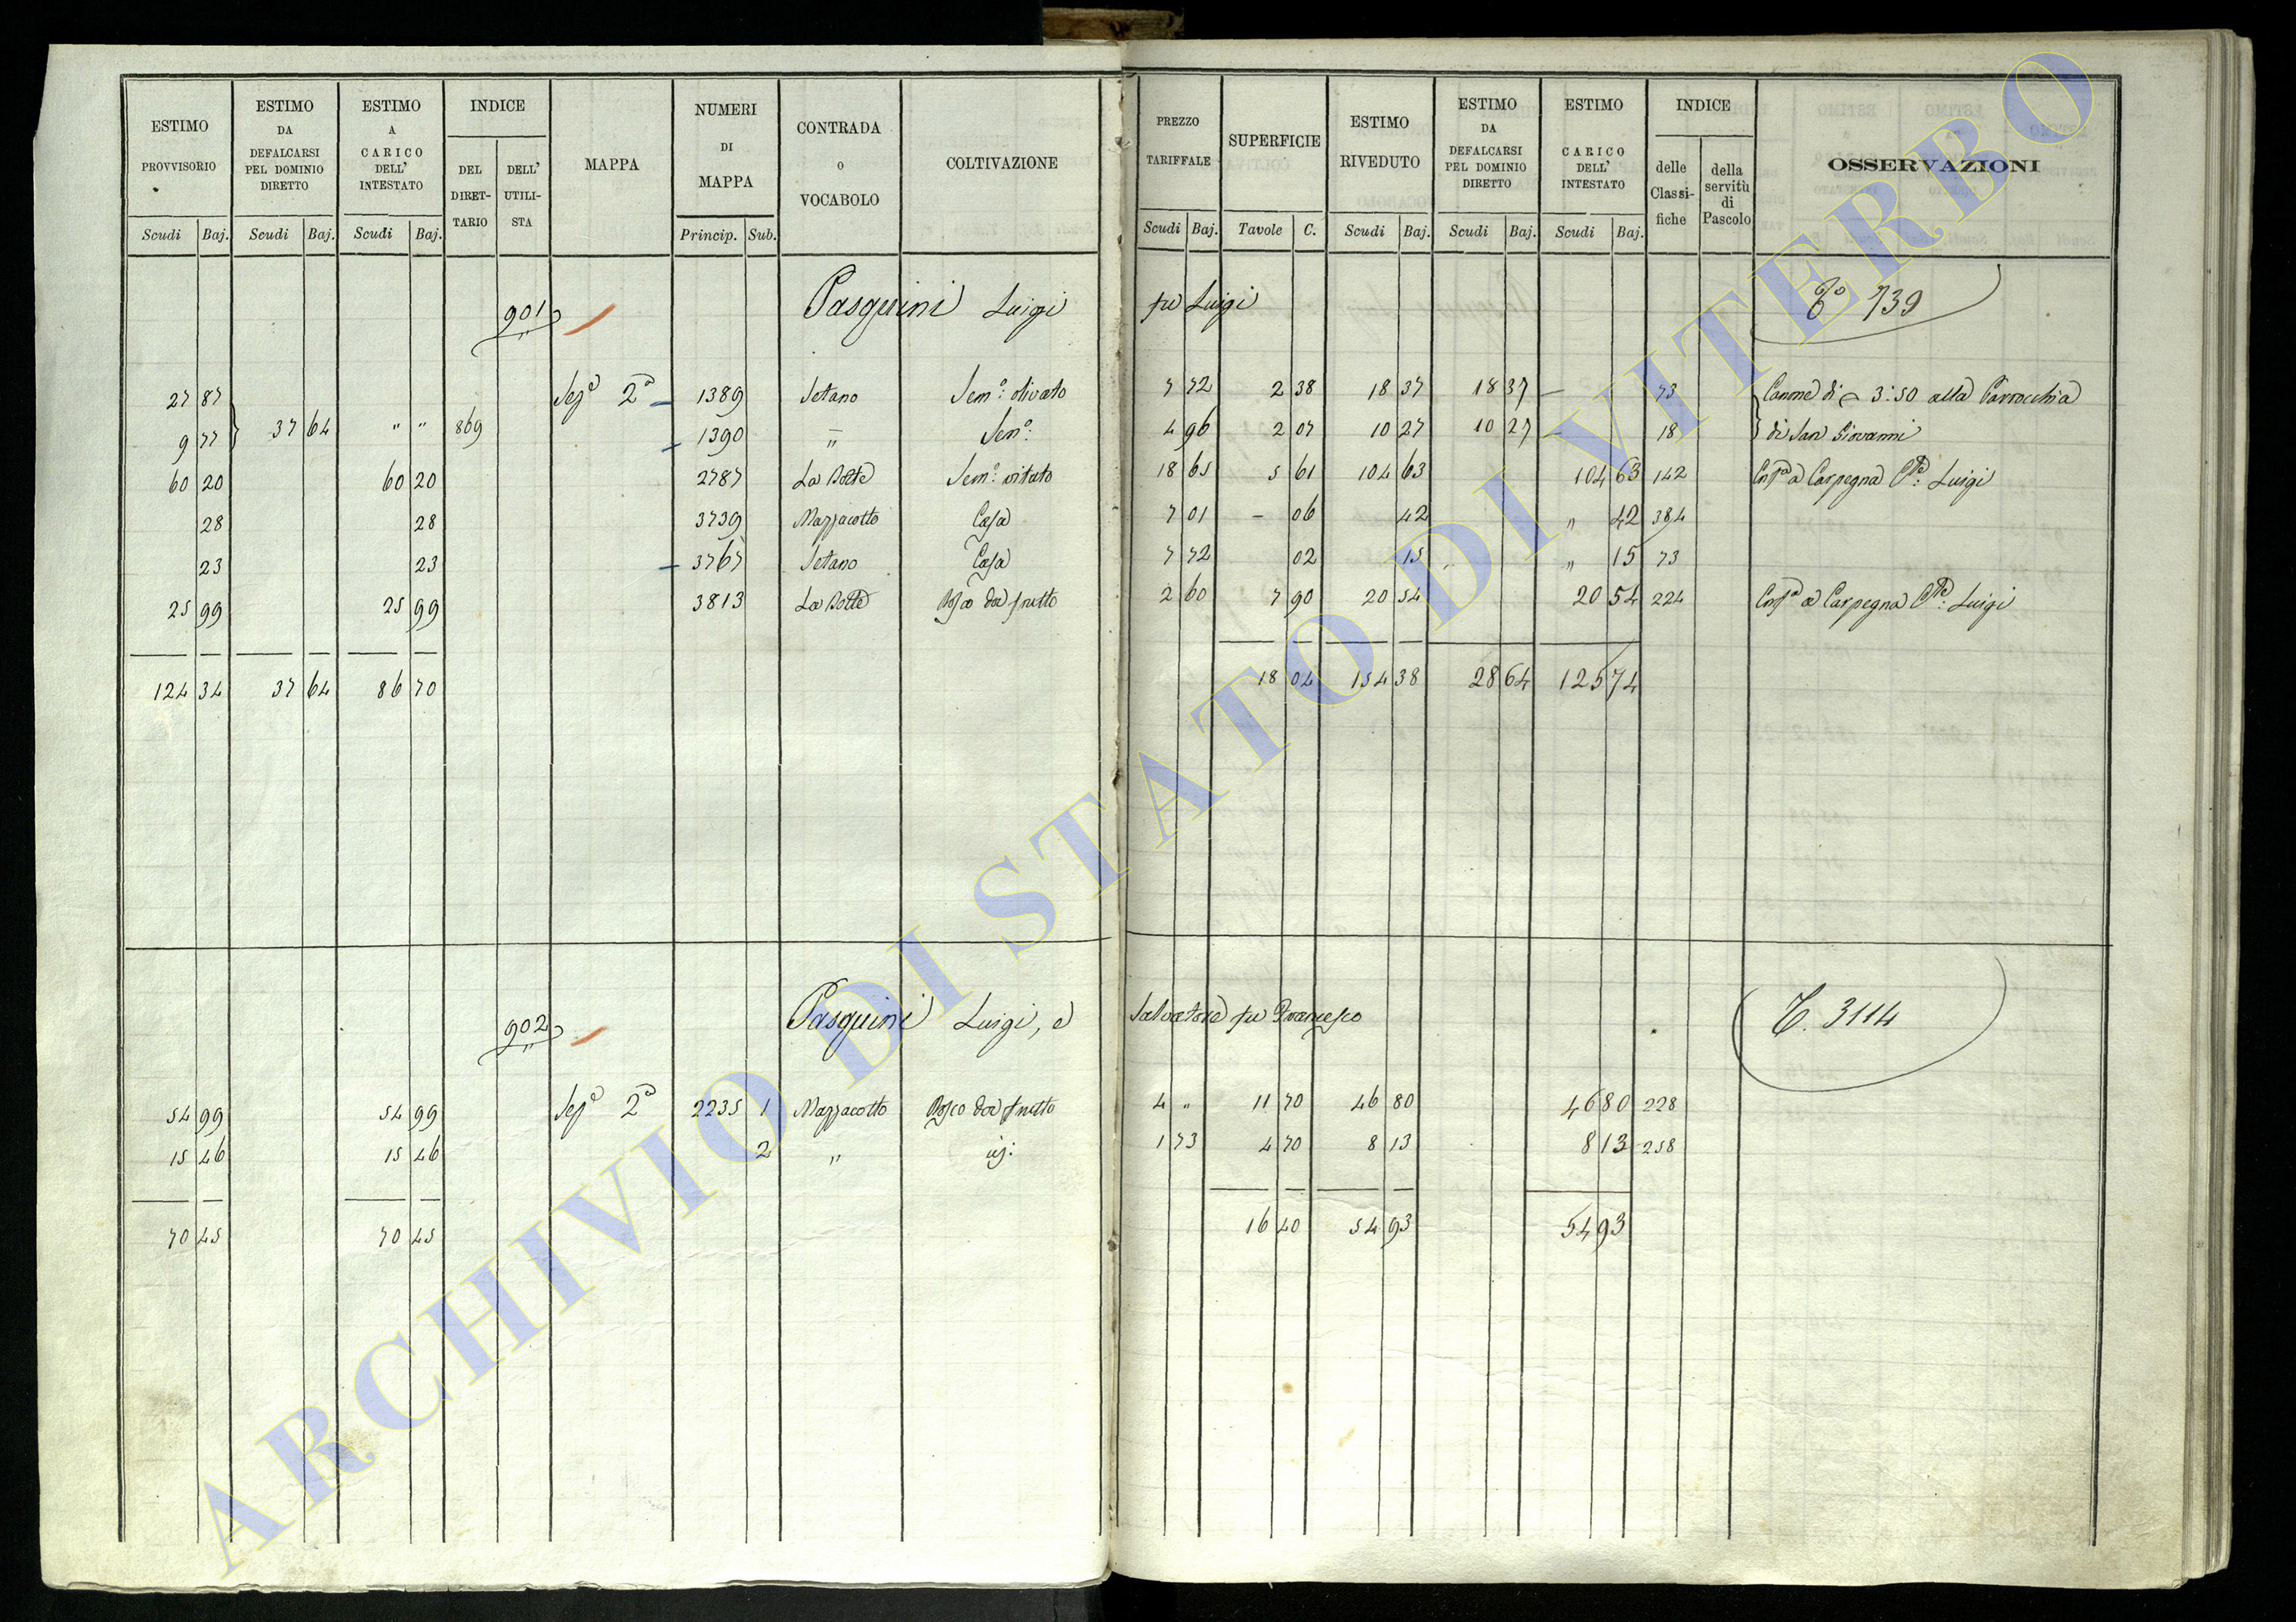 ESTIMO PROVVISORIO | ESTIMO DA DEFALCARSI PEL DOMINIO DIRETTO | ESTIMO A CARICO DELL' INTESTATO | INDICE | MAPPA | NUMERI DI MAPPA | CONTRADA O VOCABOLO | COLTIVAZIONE | PREZZO TARIFFALE | SUPERFICIE | ESTIMO RIVEDUTO | ESTIMO DA DEFALCARSI PEL DOMINIO DIRETTO | ESTIMO A CARICO DELL' INTESTATO | INDICE | OSSERVAZIONI
DEL DIRETTARIO | DELL' UTILISTA | delle Classifiche | della servitù di Pascolo
Scudi Baj. | Scudi Baj. | Scudi Baj. | Princip. Sub. | Scudi Baj. | Tavole C. | Scudi Baj. | Scudi Baj. | Scudi Baj.
901 Pasquini Luigi fu Luigi 739
27 87 | Sez.e 2a | 1389 | Setano | Sem.o olivato | 7 72 | 2 38 | 18 37 | 18 37 | — | 73 | Canone di 3:50 alla Parrocchia
9 77 | 37 64 | " " | 869 | 1390 | " | Sem.o | 4 96 | 2 07 | 10 27 | 10 27 | — | 18 | di San Giovanni
60 20 | 60 20 | 2787 | La Botte | Sem.o vitato | 18 65 | 5 61 | 104 63 | 104 63 | 142 | a Carpegna Luigi
28 | 28 | 3739 | Mazzacotto | Casa | 7 01 | - 06 | 42 | " 42 | 384
23 | 23 | 3767 | Setano | Casa | 7 72 | 02 | 15 | " 15 | 73
25 99 | 25 99 | 3813 | La Botte | Bosco da frutto | 2 60 | 7 90 | 20 54 | 20 54 | 224 | a Carpegna Luigi
124 34 | 37 64 | 86 70 | 18 04 | 154 38 | 28 64 | 125 74
902 Pasquini Luigi, e Salvatore fu Francesco T. 3114
54 99 | 54 99 | Sez.e 2a | 2235 | 1 | Mazzacotto | Bosco da frutto | 4 " | 11 70 | 46 80 | 46 80 | 228
15 46 | 15 46 | 2 | " | 1 73 | 4 70 | 8 13 | 8 13 | 258
70 45 | 70 45 | 16 40 | 54 93 | 54 93
ARCHIVIO DI STATO DI VITERBO